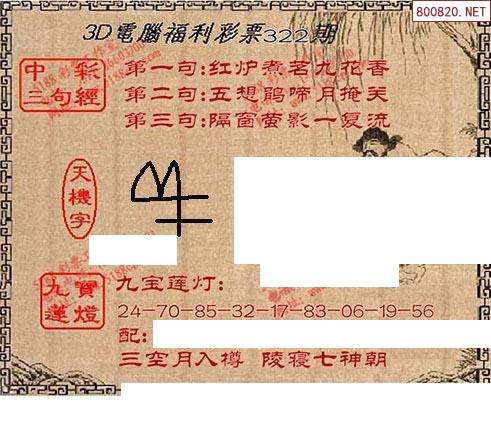 800820.NET
3D電腦福利彩票322期
中彩三句經
第一句:红炉煮茗九花香
第二句:五想鹃啼月掩关
第三句:隔窗萤影一复流
天機字
九寶蓮燈
九宝莲灯:
24-70-85-32-17-83-06-19-56
配:
三空月入樽 陵寝七神朝